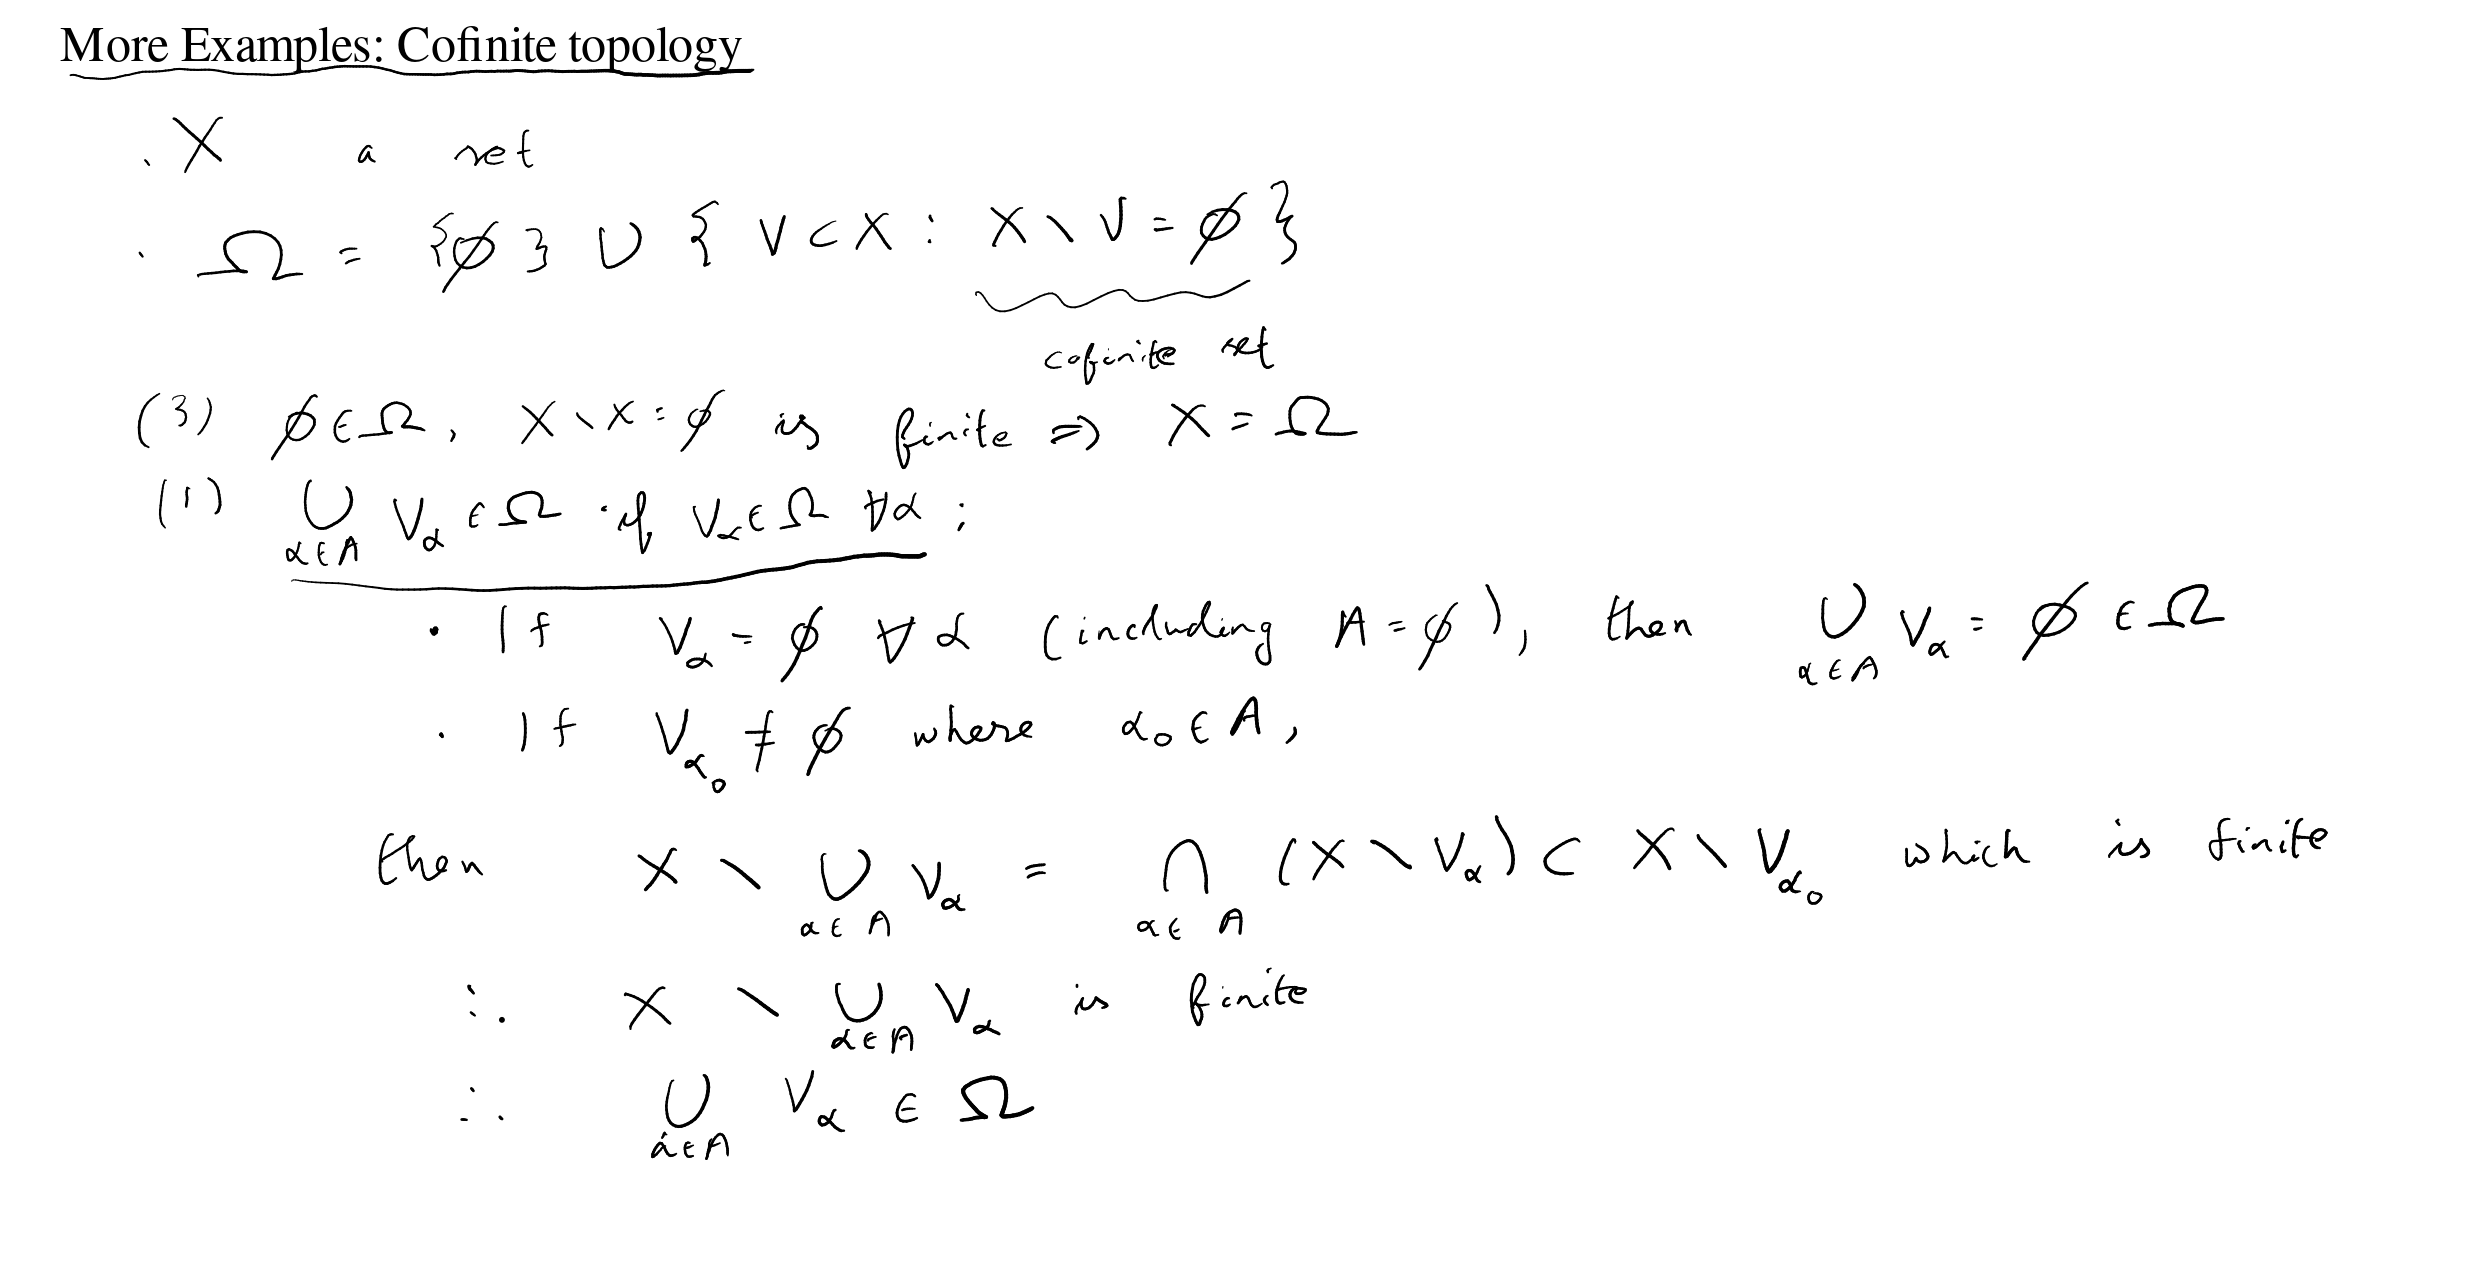 More Examples: Cofinite topology
· X a set
· Ω = {∅} ∪ { V ⊂ X : X \ V = ∅ }
cofinite set
(3) ∅ ∈ Ω, X \ X = ∅ is finite ⇒ X = Ω
(1) ∪_{α∈A} V_α ∈ Ω if V_α ∈ Ω ∀α ;
· If V_α = ∅ ∀ α (including A = ∅), then ∪_{α∈A} V_α = ∅ ∈ Ω
· If V_{α_0} ≠ ∅ where α_0 ∈ A,
then X \ ∪_{α∈A} V_α = ∩_{α∈A} (X \ V_α) ⊂ X \ V_{α_0} which is finite
∴ X \ ∪_{α∈A} V_α is finite
∴ ∪_{α∈A} V_α ∈ Ω